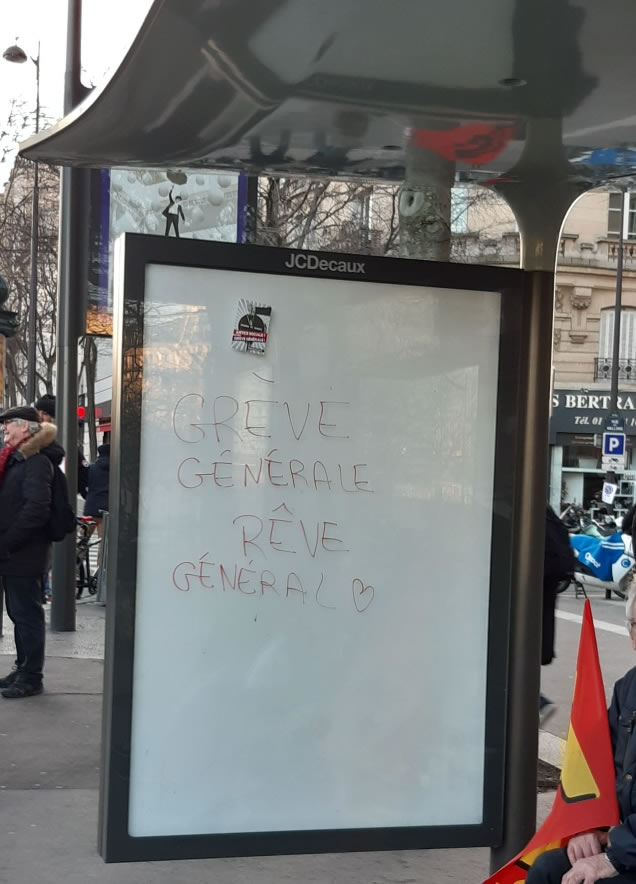 JCDecaux
GRÈVE
GÉNÉRALE
RÊVE
GÉNÉRAL ♡
S BERTRA
Tél. 01
P